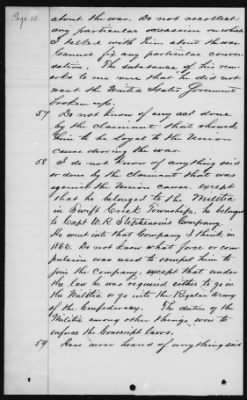 Page 10
about the war. Do not recollect
any particular occassion on which
I talked with him about the war.
Cannot fix any particular conver-
sation. The substance of his rem-
arks to me were that he did not
want the United States Government
broken up.
57 Do not know of any act done
by the claimant that showed
him to be loyal to the Union
cause during the war.
58 I do not know of anything said
or done by the claimant that was
against the Union cause except
that he belonged to the Militia
in Swift Creek Township, he belonged
to Capt W. R. Stephenson's Company.
He went into that Company I think in
186. Do not know what force or com-
pulsion was used to compel him to
join the Company, except that under
the law he was required either to go in
the Militia or go into the Regular Army
of the Confederacy. The duties of the
Militia among other things were to
enforce the Conscript laws.
59 Have never heard of anything said